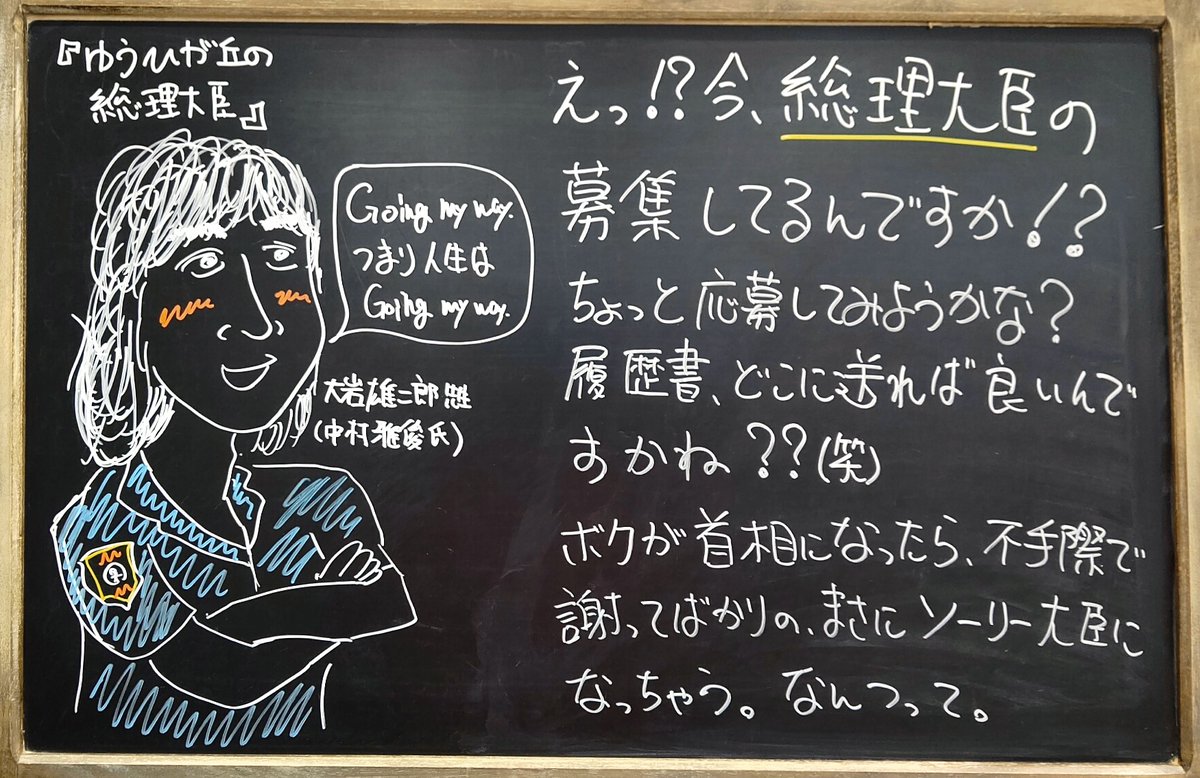 『ゆうひが丘の
総理大臣』
Going my way.
つまり人生は
Going my way.
大岩雄二郎
(中村雅俊氏)
えっ!?今、総理大臣の
募集してるんですか!?
ちょっと応募してみようかな?
履歴書、どこに送れば良いんで
すかね??(笑)
ボクが首相になったら、不手際で
謝ってばかりの、まさにソーリー大臣に
なっちゃう。なんつって。